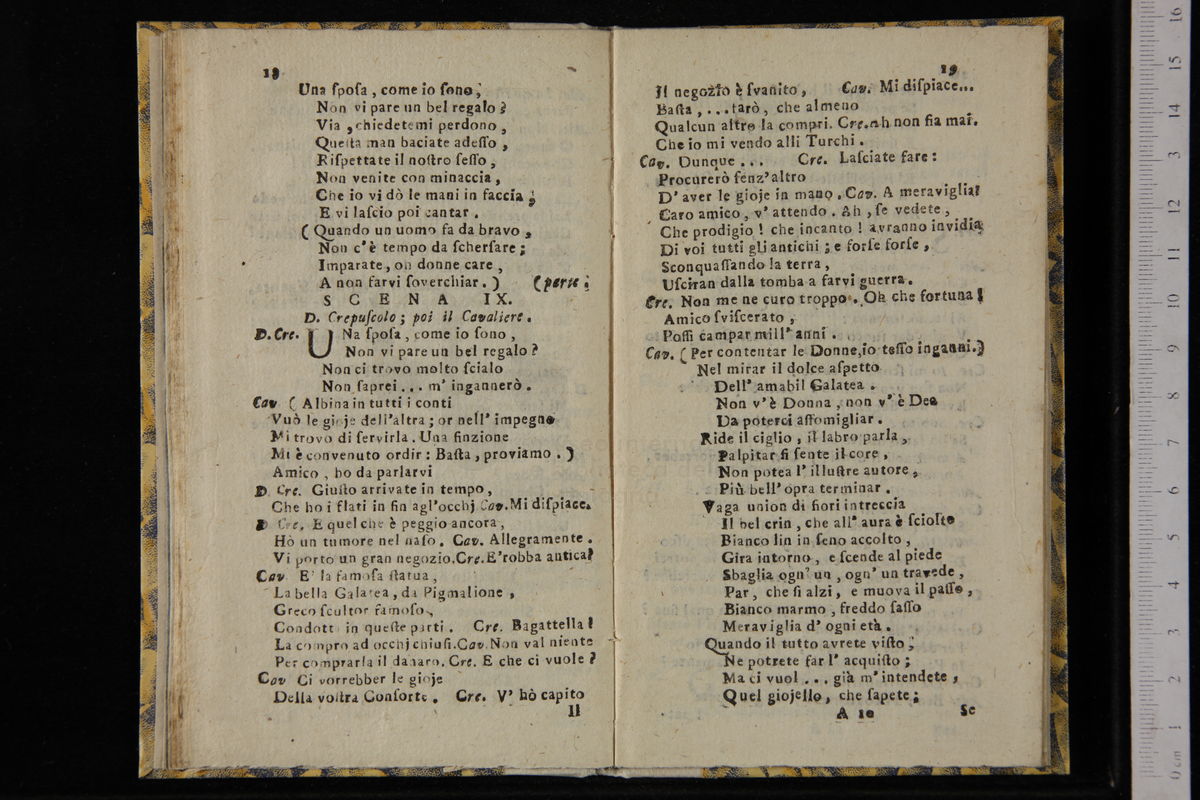 18
Una ſpoſa, come io ſono;
Non vi pare un bel regalo?
Via, chiedetemi perdono,
Queſta man baciate adeſſo,
Riſpettate il noſtro ſeſſo,
Non venite con minaccia,
Che io vi dò le mani in faccia;
E vi laſcio poi cantar.
(Quando un uomo fa da bravo,
Non c'è tempo da ſcherſare;
Imparate, oh donne care,
A non farvi ſoverchiar.) (parte.
SCENA IX.
D. Crepuſcolo; poi il Cavaliere.
D. Cre. UNa ſpoſa, come io ſono,
Non vi pare un bel regalo?
Non ci trovo molto ſcialo
Non ſaprei... m' ingannerò.
Cav (Albina in tutti i conti
Vuò le gioje dell'altra; or nell' impegno
Mi trovo di ſervirla. Una finzione
Mi è convenuto ordir: Baſta, proviamo.)
Amico, ho da parlarvi
D. Cre. Giuſto arrivate in tempo,
Che ho i flati in fin agl'occhj Cav. Mi diſpiace.
D Cre. E quel che è peggio ancora,
Hò un tumore nel naſo. Cav. Allegramente.
Vi porto un gran negozio. Cre. E' robba antica?
Cav E' la famoſa ſtatua,
La bella Galatea, da Pigmalione,
Greco ſcultor famoſo,
Condott in queſte parti. Cre. Bagattella!
La compro ad occhj chiuſi. Cav. Non val niente
Per comprarla il danaro. Cre. E che ci vuole?
Cav Ci vorrebber le gioje
Della voſtra Conſorte. Cre. V' hò capito
Il
19
Il negozio è ſvanito, Cav. Mi diſpiace...
Baſta, ...tarò, che almeno
Qualcun altro la compri. Cre. Ah non ſia mai.
Che io mi vendo alli Turchi.
Cav. Dunque... Cre. Laſciate fare:
Procurerò ſenz'altro
D' aver le gioje in mano. Cav. A meraviglia!
Caro amico, v' attendo. Ah, ſe vedete,
Che prodigio! che incanto! avranno invidia
Di voi tutti gli antichi; e forſe forſe,
Sconquaſſando la terra,
Uſciran dalla tomba a farvi guerra.
Cre. Non me ne curo troppo. Oh che fortuna!
Amico ſviſcerato,
Poſſi campar mill' anni.
Cav. (Per contentar le Donne, io teſſo inganni.)
Nel mirar il dolce aſpetto
Dell' amabil Galatea.
Non v' è Donna, non v' è Dea
Da poterci aſſomigliar.
Ride il ciglio, il labro parla,
Palpitar ſi ſente il core,
Non potea l' illuſtre autore,
Più bell' opra terminar.
Vaga union di fiori intreccia
Il bel crin, che all' aura è ſciolto
Bianco lin in ſeno accolto,
Gira intorno, e ſcende al piede
Sbaglia ogn' un, ogn' un travede,
Par, che ſi alzi, e muova il paſſo,
Bianco marmo, freddo ſaſſo
Meraviglia d' ogni età.
Quando il tutto avrete viſto;
Ne potrete far l' acquiſto;
Ma ci vuol... già m' intendete,
Quel giojello, che ſapete;
A 10 Se